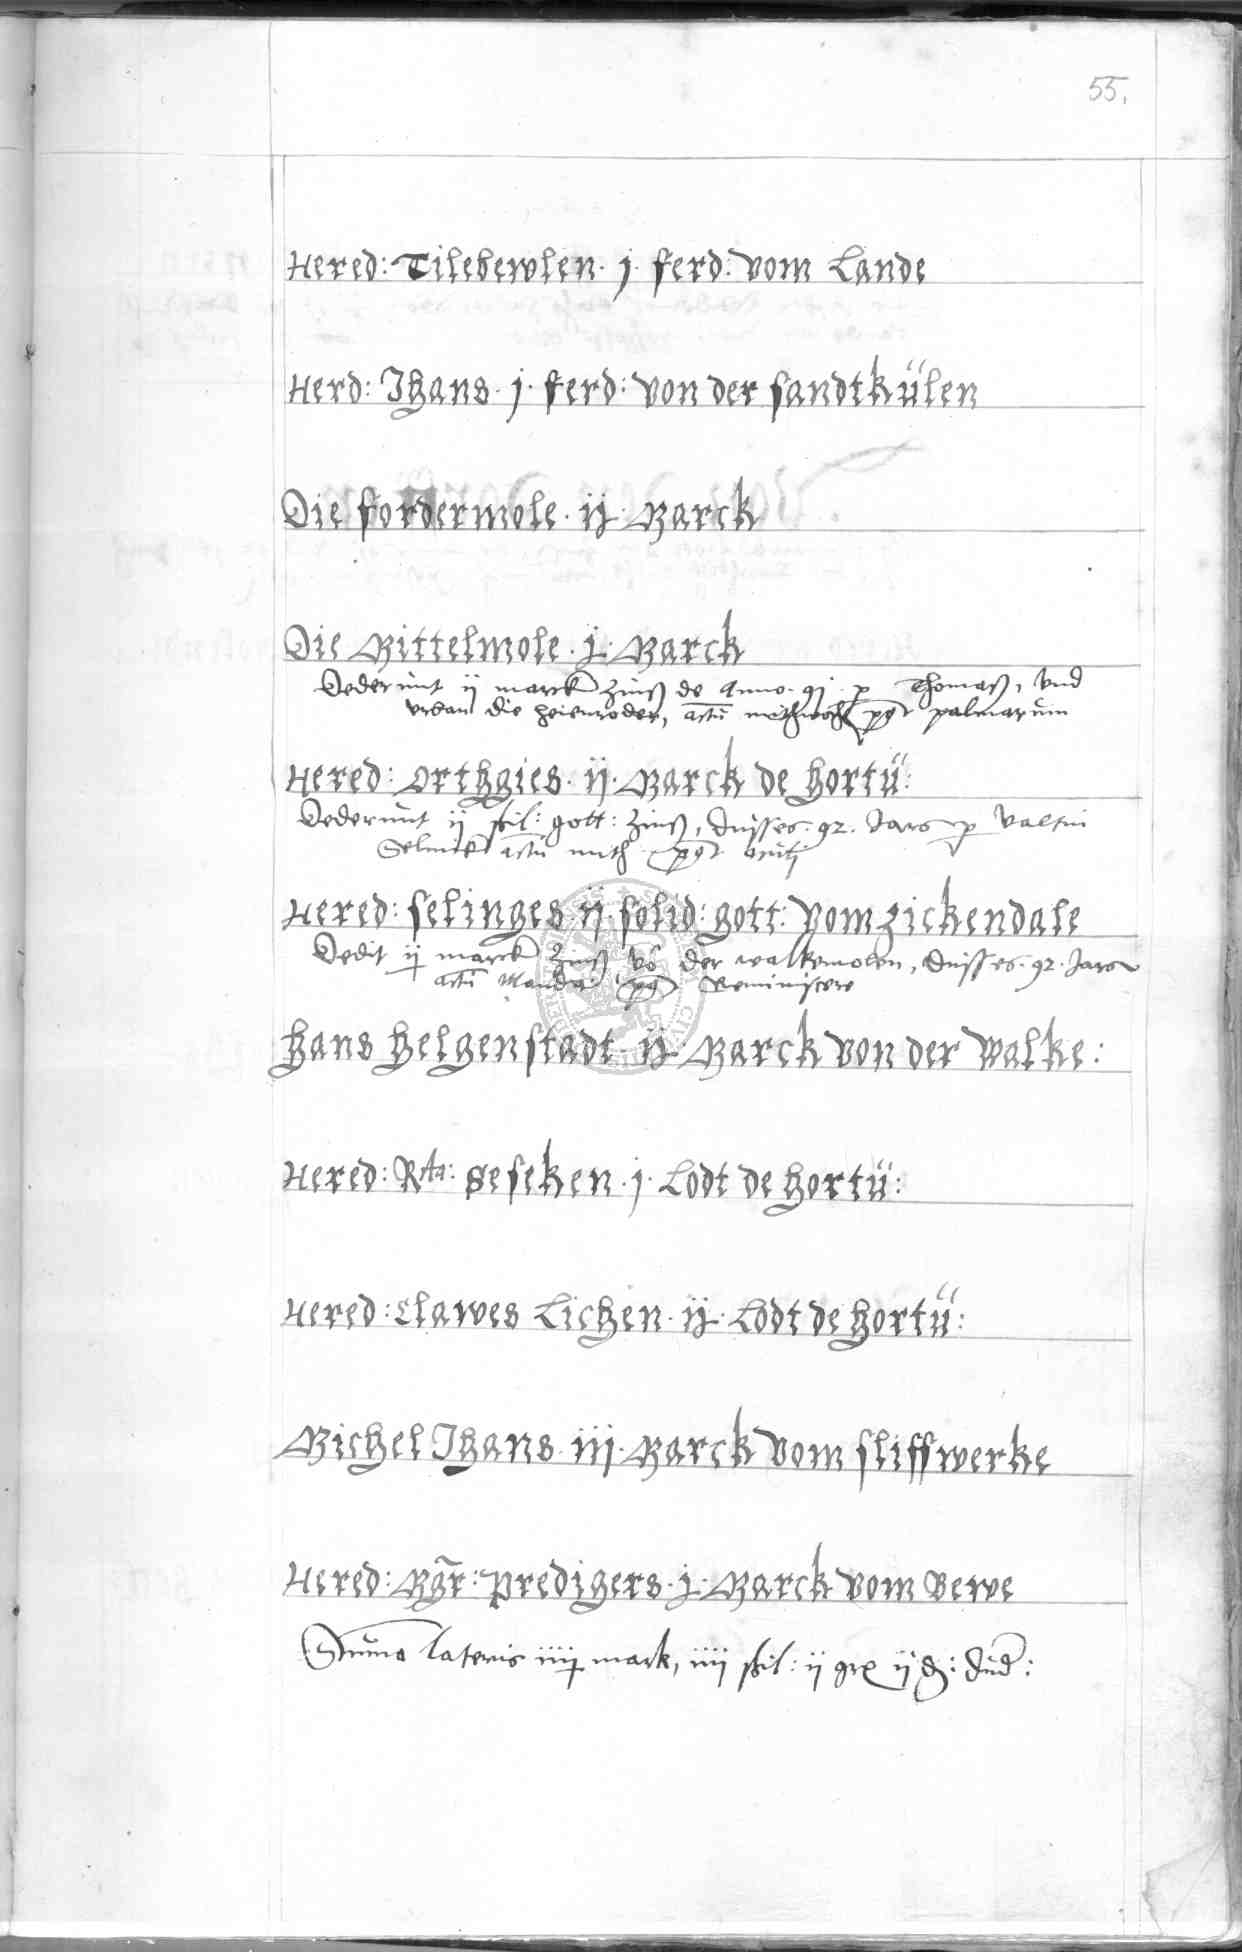 55.
Hered: Tilebewlen. j. ferd: vom Lande
Herd: Jhans. j. ferd: von der sandtkülen
Die fordermole. ij. Marck
Die Mittelmole. j. Marck
Dederunt ij marck Zinß de Anno. 91. p Thomaß, und
urban die heienroder, actū mithwoch pq palmarum
Hered: Orthgies. ij. Marck de hortū:
Dederunt ij ßil: gott: Zinß, dusses. 92. Jars p Valtin
actū mith pq
Hered: selinges. ij. solid: gott: vom zickendale
Dedit ij marck Zinß vō der walkemolen, dusses. 92. Jars
actū Manda pq Reminiscere
Hans Helgenstadt. ij. Marck von der Walke:
Hered: Seseken. j. Lodt de hortū:
Hered: Clawes Lichen. ij. Lodt de hortū:
Michel Jhans. iij. Marck vom sliffwerke
Hered: Mgr̄: predigers. j. Marck vom Bewe
Sūma lateris iiij mark, iiij ßil: ij gr ij